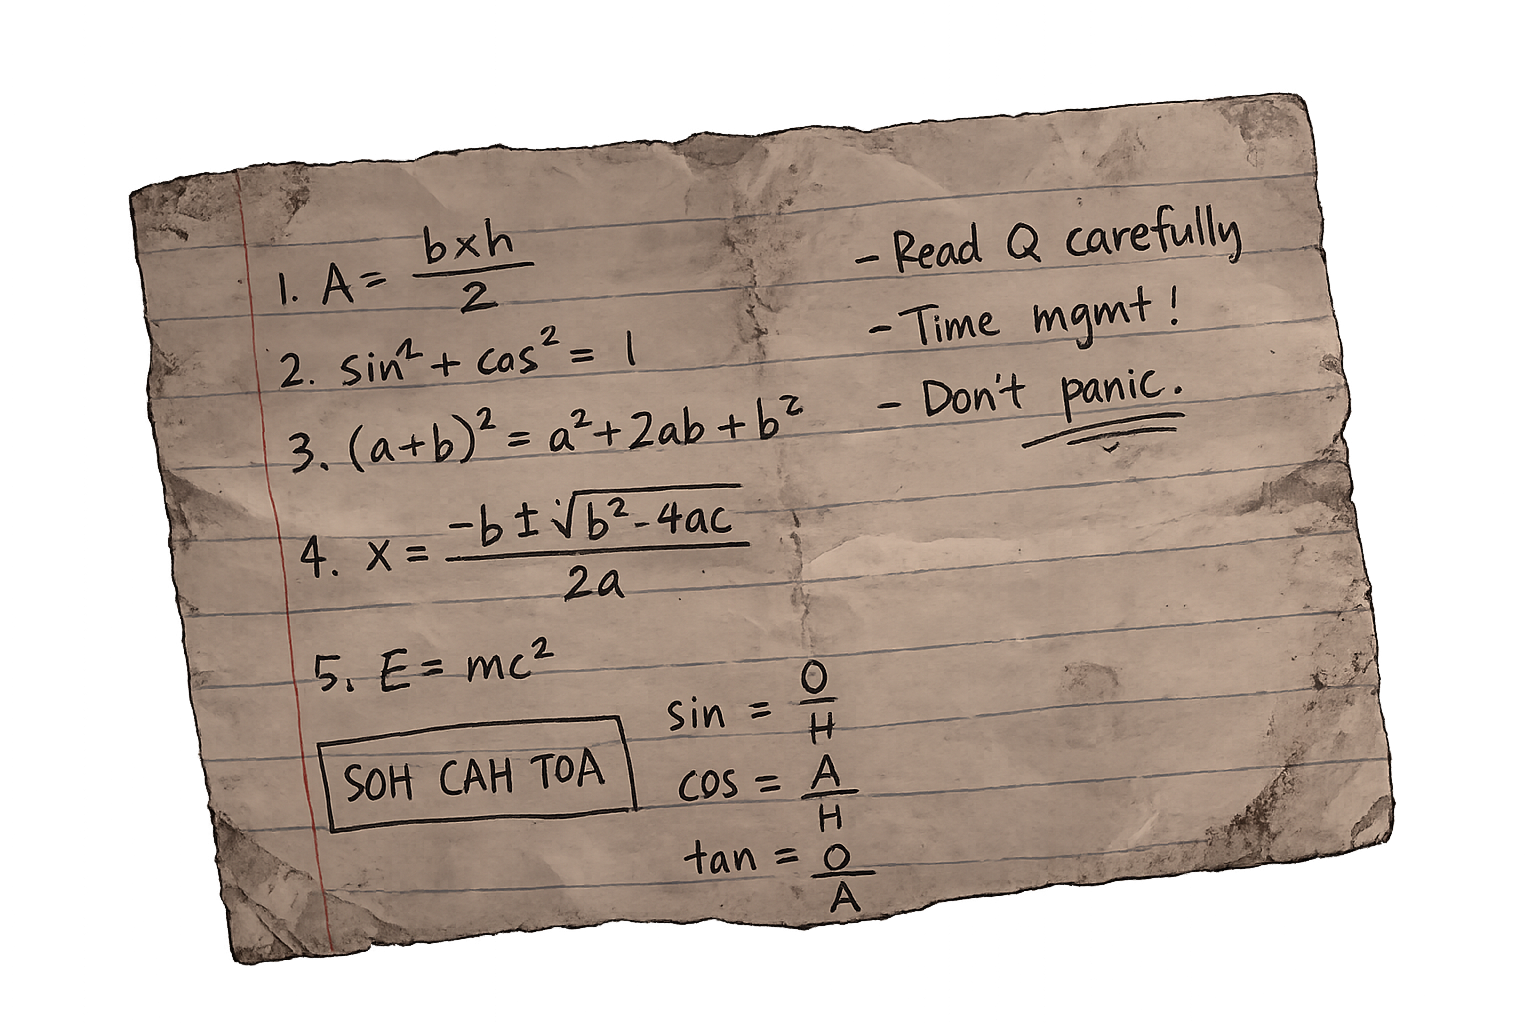 1. A = b×h / 2
2. sin² + cos² = 1
3. (a+b)² = a²+2ab+b²
4. x = -b ± √b²-4ac / 2a
5. E = mc²
SOH CAH TOA
sin = O/H
cos = A/H
tan = O/A
- Read Q carefully
- Time mgmt!
- Don't panic.